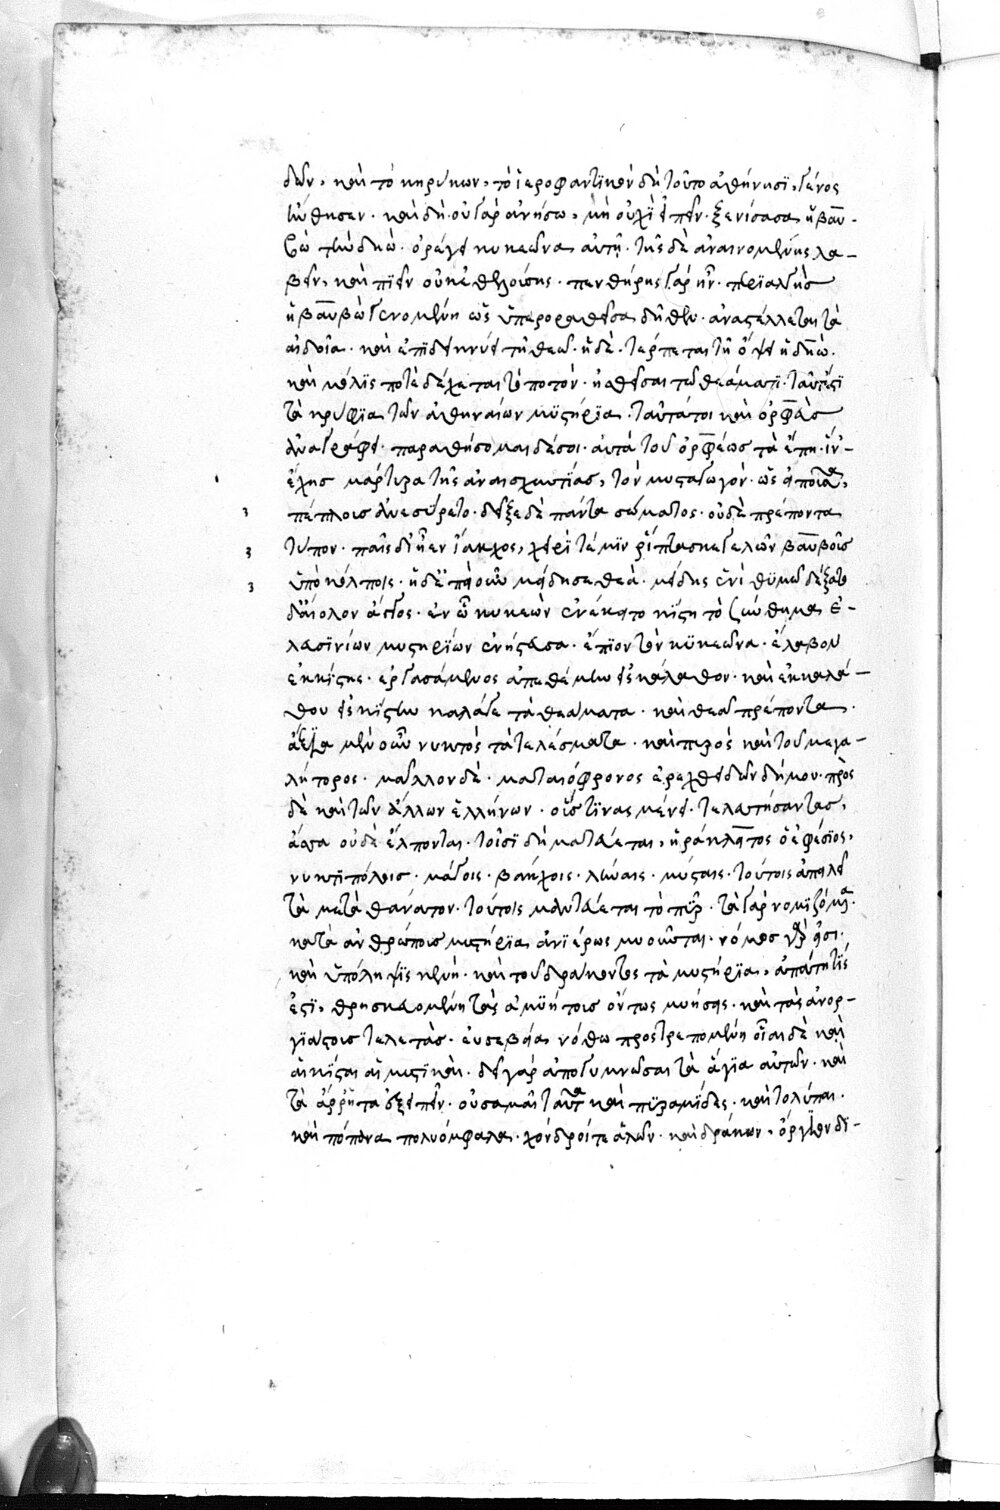 δῶν, καὶ τὸ κηρύκων, τὸ ἱεροφαντικὸν δὴ τοῦτο ἀθήνησι, γένος
ἤνθησεν. καὶ δὴ. οὐ γὰρ ἀνήσω, μὴ οὐχὶ εἰπεῖν. ξενίσασα ἡ βαυ-
βὼ τὴν δηὼ. ὀρέγει κυκεῶνα αὐτῇ. τῆς δὲ ἀναινομένης λα-
βεῖν, καὶ πιεῖν οὐκ ἐθελούσης. πενθήρης γὰρ ἦν. περιαλγὴς
ἡ βαυβὼ γενομένη ὡς ὑπεροραθεῖσα δῆθεν. ἀναστέλλεται τὰ
αἰδοῖα. καὶ ἐπιδεικνύει τῇ θεῷ. ἡ δὲ. τέρπεται τῇ ὄψει ἡ δηώ.
καὶ μόλις ποτὲ δέχεται τὸ ποτόν. ἡσθεῖσα τῷ θεάματι. ταῦτ' ἔστι
τὰ κρύφια τῶν ἀθηναίων μυστήρια. ταῦτά τοι καὶ ὀρφεὺς
ἀναγράφει. παραθήσομαι δέ σοι. αὐτὰ τοῦ ὀρφέως τὰ ἔπη. ἵν'
ἔχῃς μάρτυρα τῆς ἀναισχυντίας, τὸν μυσταγωγόν. ὡς εἰποῦσα,
πέπλους ἀνεσύρετο. δεῖξε δὲ πάντα σώματος. οὐδὲ πρέποντα
τύπον. παῖς δ' ἦεν ἴακχος, χειρί τέ μιν ῥίπτασκε γελῶν βαυβοῦς
ὑπὸ κόλποις. ἡ δ' ἐπεὶ οὖν μείδησε θεά. μείδησ' ἐνὶ θυμῷ δέξατο
δ' αἰόλον ἄγγος. ἐν ᾧ κυκεὼν ἐνέκειτο κἄστι τὸ σύνθημα ἐ-
λευσινίων μυστηρίων ἐνήστευσα. ἔπιον τὸν κυκεῶνα. ἔλαβον
ἐκ κίστης. ἐργασάμενος ἀπεθέμην εἰς κάλαθον. καὶ ἐκ καλά-
θου εἰς κίστην καλά γε τὰ θεάματα. καὶ θεᾷ πρέποντα.
ἄξια μὲν οὖν νυκτὸς τὰ τελέσματα. καὶ πυρός καὶ τοῦ μεγα-
λήτορος. μᾶλλον δὲ. ματαιόφρονος ἐρεχθειδῶν δήμου. πρὸς
δὲ καὶ τῶν ἄλλων ἑλλήνων. οὕς τινας μένει. τελευτήσαντας,
ἅσσα οὐδὲ ἔλπονται. τίσι δὴ μαντεύεται, ἡράκλειτος ὁ ἐφέσιος,
νυκτιπόλοις. μάγοις. βάκχοις. λήναις. μύσταις. τούτοις ἀπειλεῖ
τὰ μετὰ θάνατον. τούτοις μαντεύεται τὸ πῦρ. τὰ γὰρ νομιζόμενα
κατὰ ἀνθρώπους μυστήρια ἀνιέρως μυοῦνται. νόμος γὰρ εἰσι.
καὶ ὑπόληψις κενή. καὶ τοῦ δράκοντος τὰ μυστήρια, ἀπάτη τίς
ἐστι, θρησκευομένη τὰς ἀμυήτους ὄντως μυήσεις. καὶ τὰς ἀνορ-
γιάστους τελετὰς. εὐσεβείᾳ νόθῳ προστρεπομένη οἷαι δὲ καὶ
αἱ κίσται αἱ μυστικαί. δεῖ γὰρ ἀπογυμνῶσαι τὰ ἅγια αὐτῶν. καὶ
τὰ ἄρρητα ἐξειπεῖν. οὐ σησαμαῖ ταῦτα καὶ πυραμίδες. καὶ τολύπαι.
καὶ πόπανα πολυόμφαλα. χόνδροί τε ἁλῶν. καὶ δράκων, ὄργιον δι-